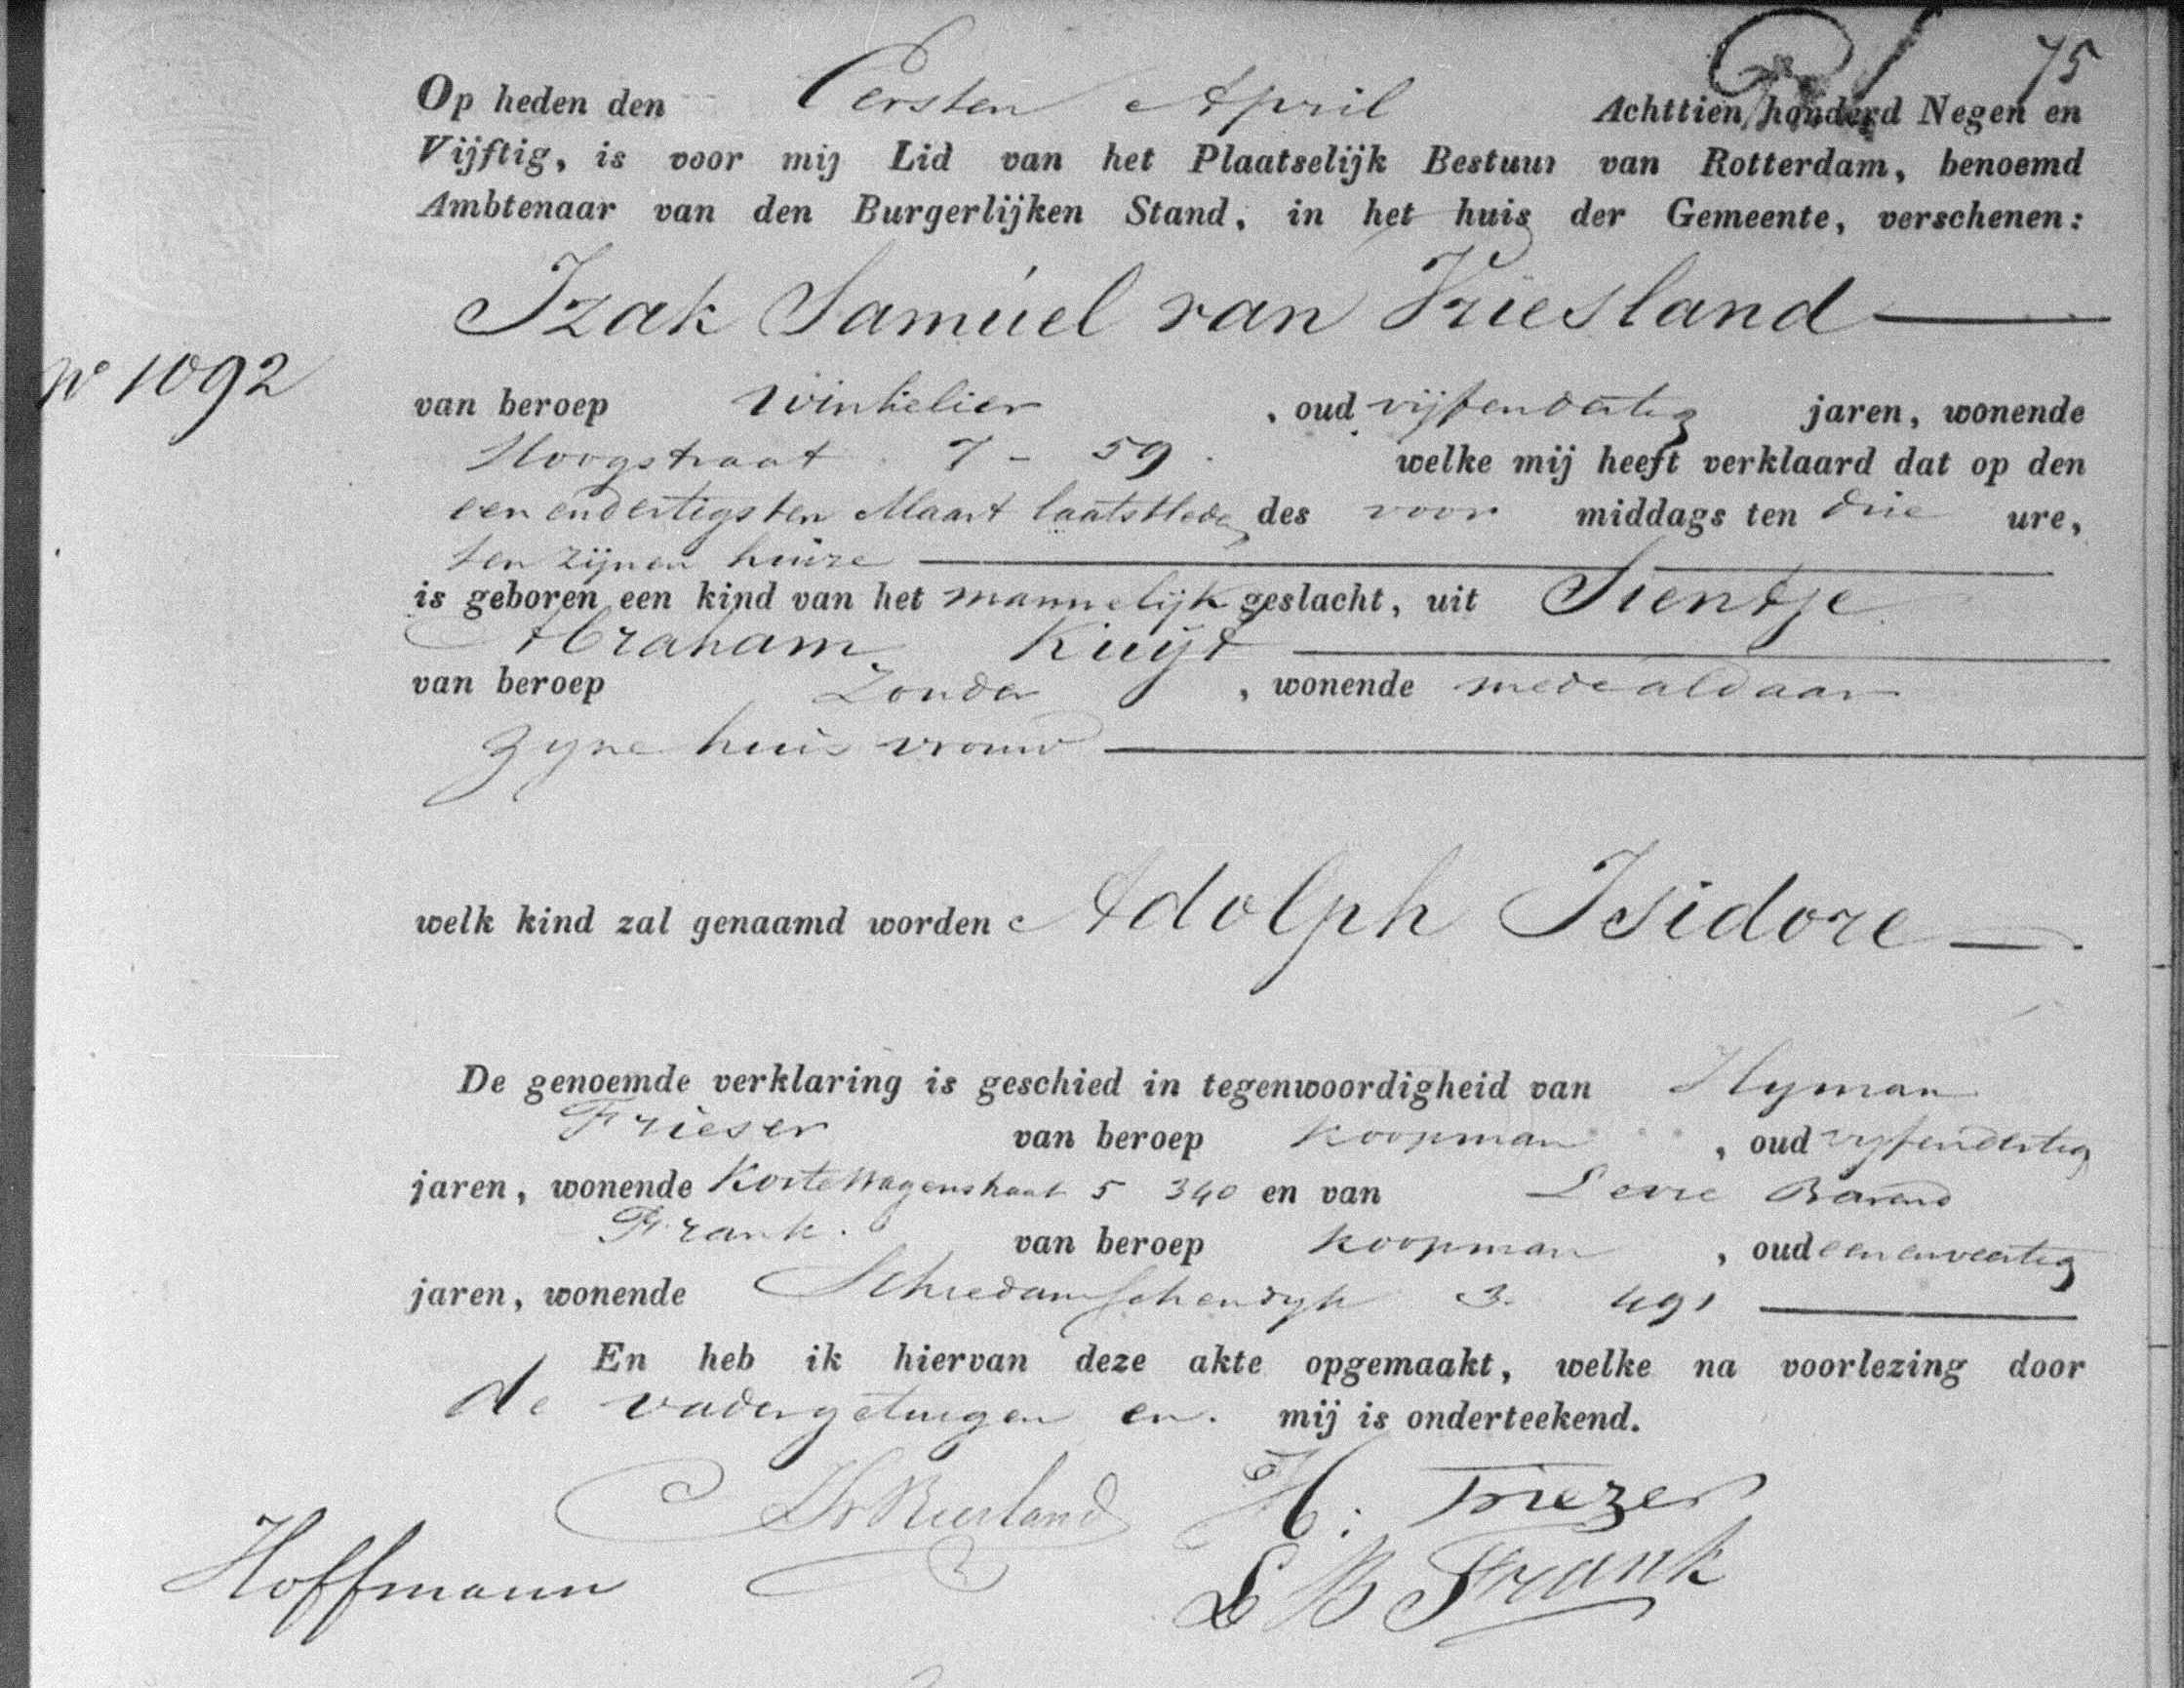 75
Op heden den Eersten April Achttien honderd Negen en
Vijftig, is voor mij Lid van het Plaatselijk Bestuur van Rotterdam, benoemd
Ambtenaar van den Burgerlijken Stand, in het huis der Gemeente, verschenen:
Izak Samúel van Vriesland
No 1092
van beroep Winkelier, oud vijfendertig jaren, wonende
Hoogstraat 7 - 59. welke mij heeft verklaard dat op den
een endertigsten Maart laatstleden des voor middags ten drie ure,
ten zijnen huize
is geboren een kind van het mannelijk geslacht, uit Sientje
Abraham Kuijt
van beroep Zonder, wonende mede aldaar
zyne huisvrouw
welk kind zal genaamd worden Adolph Isidore
De genoemde verklaring is geschied in tegenwoordigheid van Hyman
Frieser van beroep Koopman, oud vyfendertig
jaren, wonende Korte Wagenstraat 5 340 en van Levie Barend
Frank. van beroep Koopman, oud eenenveertig
jaren, wonende Schiedamschendyk 3 491
En heb ik hiervan deze akte opgemaakt, welke na voorlezing door
de vader getuigen en. mij is onderteekend.
H. Friezer
Hoffmann
L B Frank